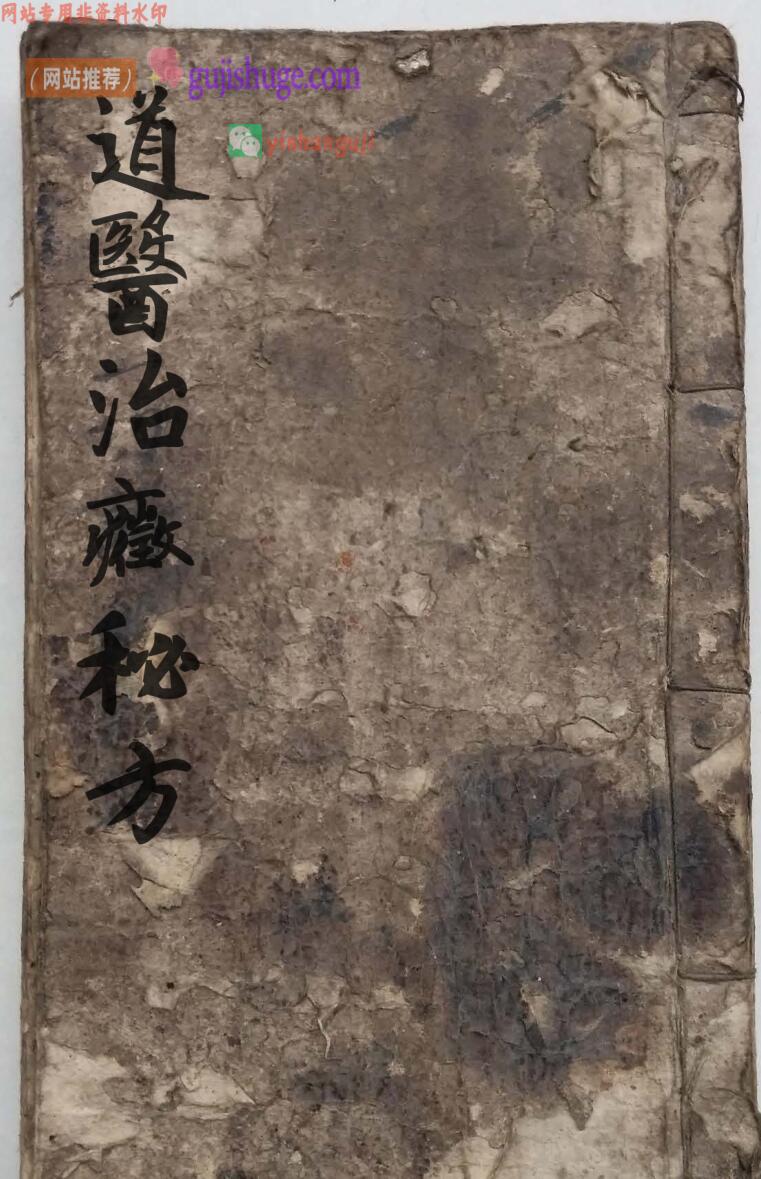 网站专用非资料水印
(网站推荐) gujishuge.com
yinhanguji
道醫治癥秘方